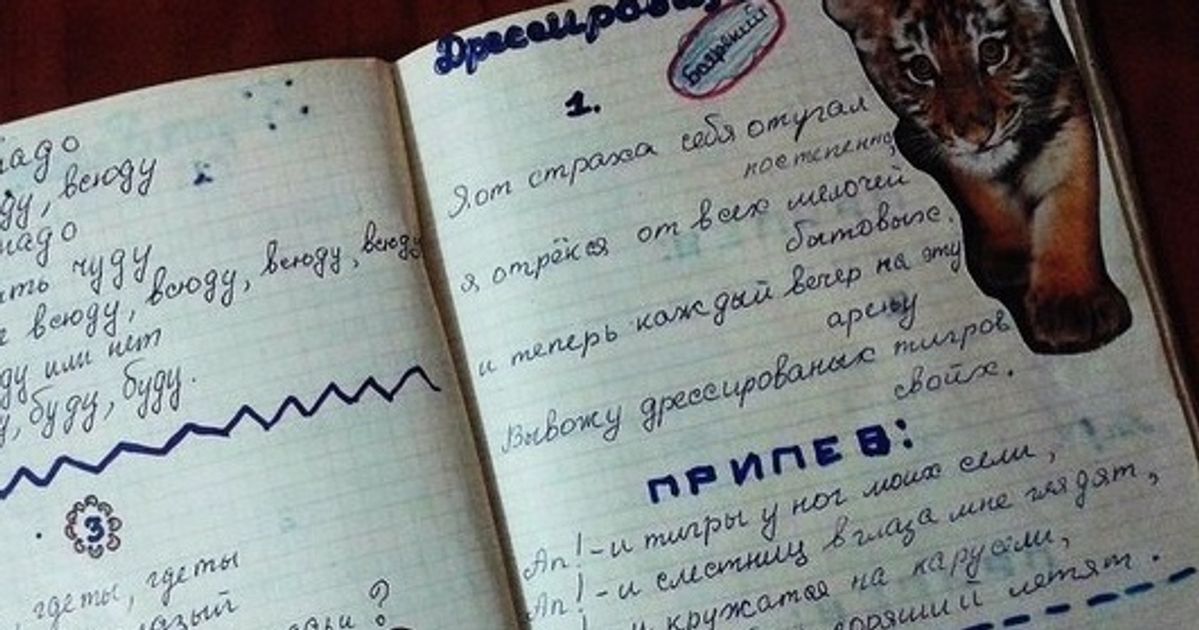 надо
всюду
надо
чуду
всюду, всюду, всюду, всюду
или нет
буду, буду.
3
где ты, где ты
?
Дрессировщ
Боярский
1.
Я от страха себя отугал
постепенно,
я отрёкся от всех мелочей
бытовых.
и теперь каждый вечер на эту
арену
Вывожу дрессированых тигров
свойх.
ПРИПЕВ:
Ап! - и тигры у ног моих сели,
Ап! - и с лестниц в глаза мне глядят,
и кружатся на карусели,
горящий летят.